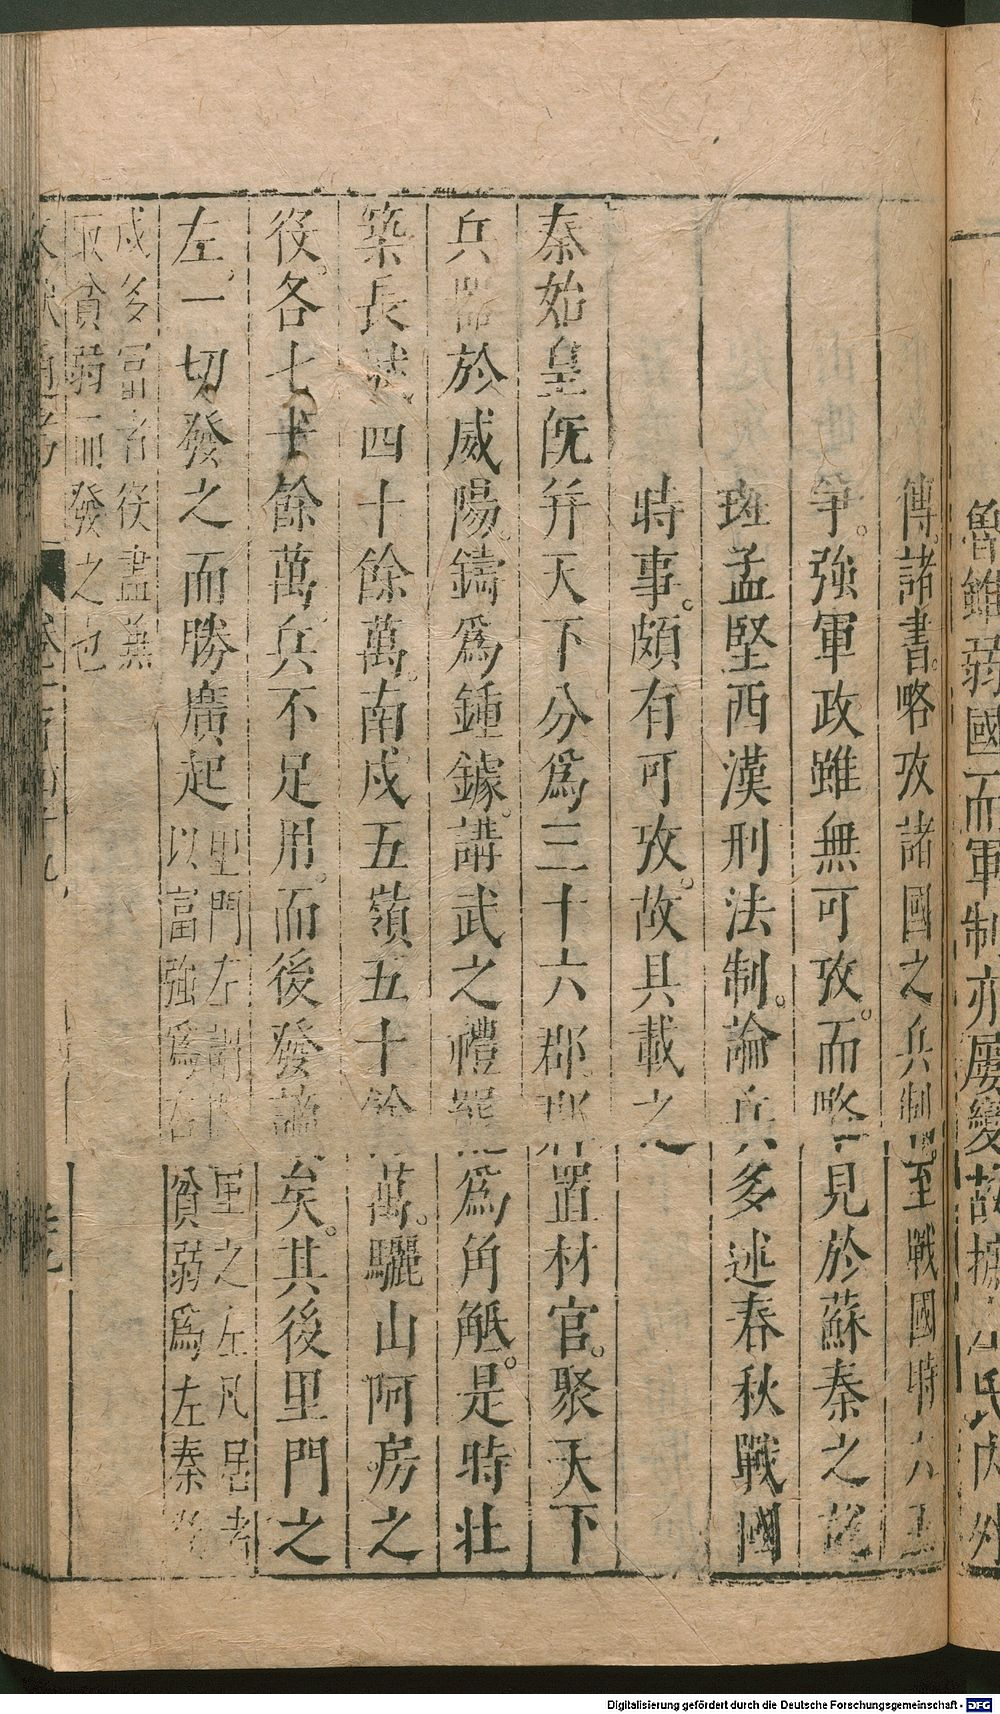 魯雖弱國而軍制亦屢變故摭氏內外
傳諸書略攷諸國之兵制至戰國時六王
爭強軍政雖無可攷而略見於蘇秦之說
班孟堅西漢刑法制論兵多述春秋戰國
時事頗有可攷故具載之
秦始皇旣并天下分爲三十六郡郡置材官聚天下
兵器於咸陽鑄爲鍾鐻講武之禮罷爲角觝是時壯
築長城四十餘萬南戍五嶺五十餘萬驪山阿房之
役各七十餘萬兵不足用而後發謫矣其後里門之
左一切發之而勝廣起
里門左謂閭里之左凡居者
以富強爲右貧弱爲左秦
戍多富者役盡兼
取貧弱而發之也
文獻通考 卷一百四十九
Digitalisierung gefördert durch die Deutsche Forschungsgemeinschaft - DFG